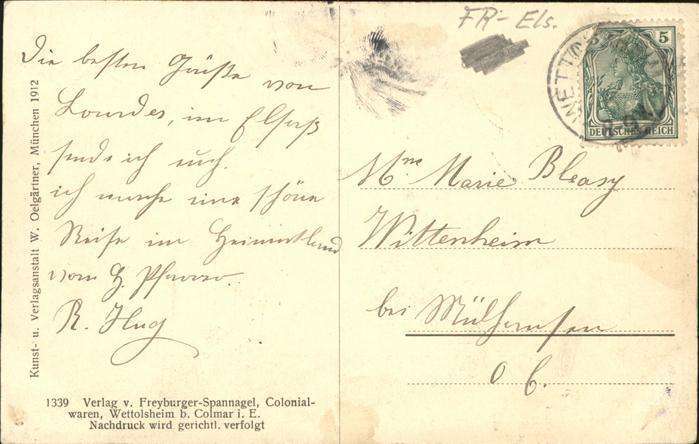 FR- Els.
Die besten Grüße von
Lourdes, im Elsaß
sende ich euch.
ich mache eine schöne
Reise im Heimatland
vom H. Pfarrer.
R. Hug
Kunst- u. Verlagsanstalt W. Oelgärtner, München 1912
1339 Verlag v. Freyburger-Spannagel, Colonial-
waren, Wettolsheim b. Colmar i. E.
Nachdruck wird gerichtl. verfolgt
5
DEUTSCHES REICH
WETTO
Mme Marie Bleasy
Wittenheim
bei Mülhausen
O E.